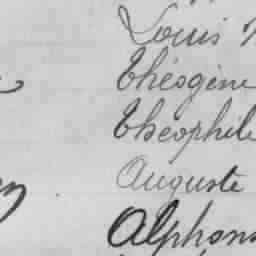 Louis
Théogène
Théophile
Auguste
Alphons